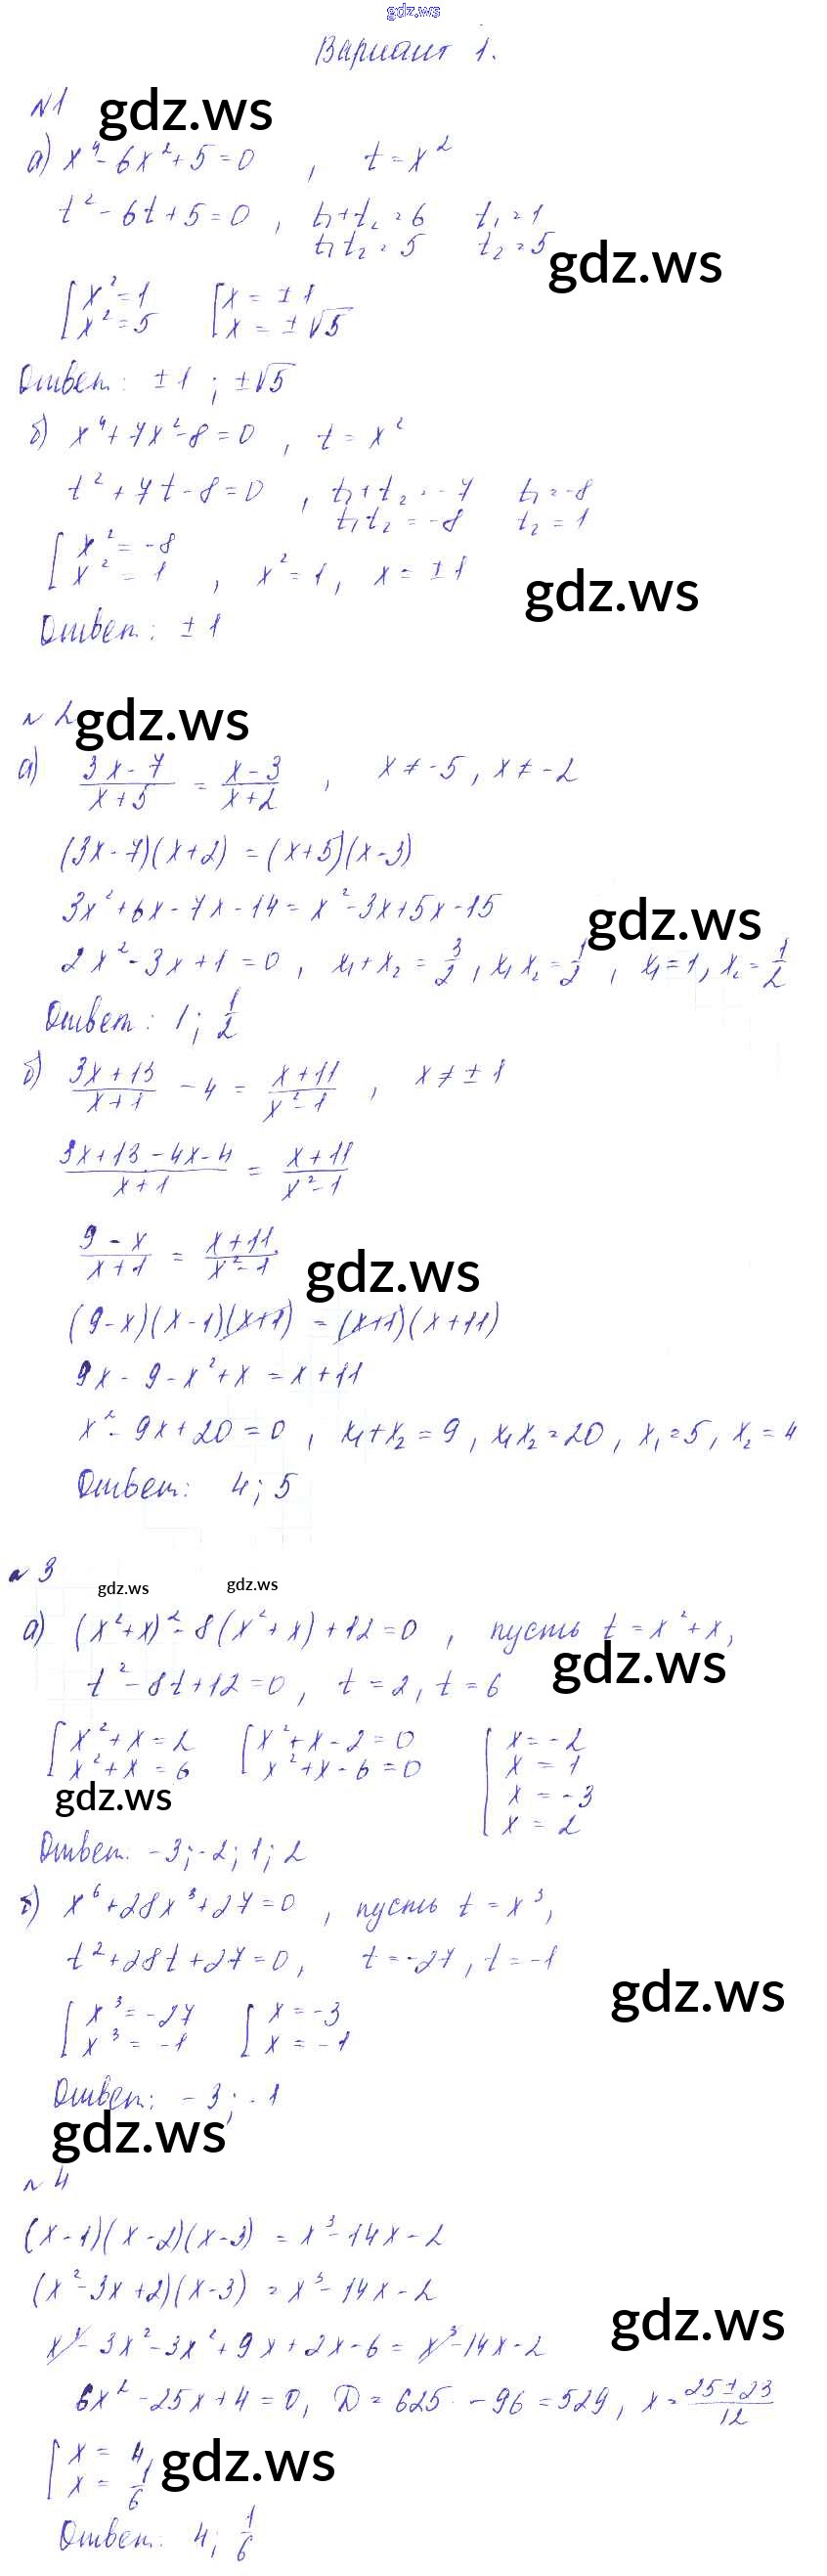 gdz.ws
Вариант 1.
№1 gdz.ws
а) x⁴-6x²+5=0 , t=x²
t²-6t+5=0 , t₁+t₂=6 t₁=1
t₁t₂=5 t₂=5
gdz.ws
[x²=1 [x=±1
x²=5 x=±√5
Ответ: ±1 ; ±√5
б) x⁴+7x²-8=0 , t=x²
t²+7t-8=0 , t₁+t₂=-7 t₁=-8
t₁t₂=-8 t₂=1
[x²=-8
x²=1 , x²=1, x=±1
gdz.ws
Ответ: ±1
№2 gdz.ws
а) (3x-7)/(x+5) = (x-3)/(x+2) , x≠-5, x≠-2
(3x-7)(x+2) = (x+5)(x-3)
3x²+6x-7x-14=x²-3x+5x-15
gdz.ws
2x²-3x+1=0 , x₁+x₂=3/2, x₁x₂=1/2 , x₁=1, x₂=1/2
Ответ: 1; 1/2
б) (3x+13)/(x+1) -4 = (x+11)/(x²-1) , x≠±1
(3x+13-4x-4)/(x+1) = (x+11)/(x²-1)
(9-x)/(x+1) = (x+11)/(x²-1)
gdz.ws
(9-x)(x-1)(x+1) = (x+1)(x+11)
9x-9-x²+x=x+11
x²-9x+20=0 , x₁+x₂=9, x₁x₂=20, x₁=5, x₂=4
Ответ: 4; 5
№3
gdz.ws gdz.ws
а) (x²+x)²-8(x²+x)+12=0 , пусть t=x²+x,
gdz.ws
t²-8t+12=0, t=2, t=6
[x²+x=2 [x²+x-2=0 [x=-2
x²+x=6 x²+x-6=0 x=1
x=-3
gdz.ws
x=2
Ответ. -3; -2; 1; 2
б) x⁶+28x³+27=0 , пусть t=x³,
t²+28t+27=0, t=-27, t=-1
gdz.ws
[x³=-27 [x=-3
x³=-1 x=-1
Ответ: -3; -1
gdz.ws
№4
(x-1)(x-2)(x-3) = x³-14x-2
(x²-3x+2)(x-3) = x³-14x-2
gdz.ws
x³-3x²-3x²+9x+2x-6=x³-14x-2
6x²-25x+4=0, D=625-96=529, x=(25±23)/12
[x=4
x=1/6
gdz.ws
Ответ: 4; 1/6